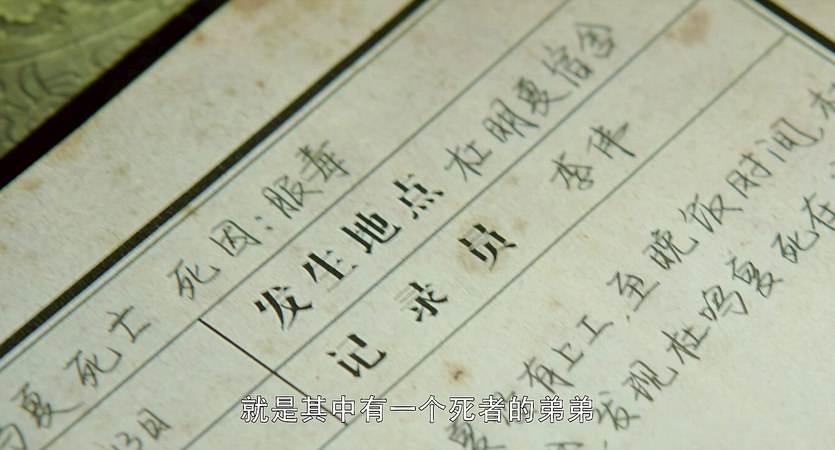 死亡 死因：服毒
发生地点 杜明夏宿舍
记录员 李伟
13日
有上工，至晚饭时间，
发现杜鸣夏死在
就是其中有一个死者的弟弟